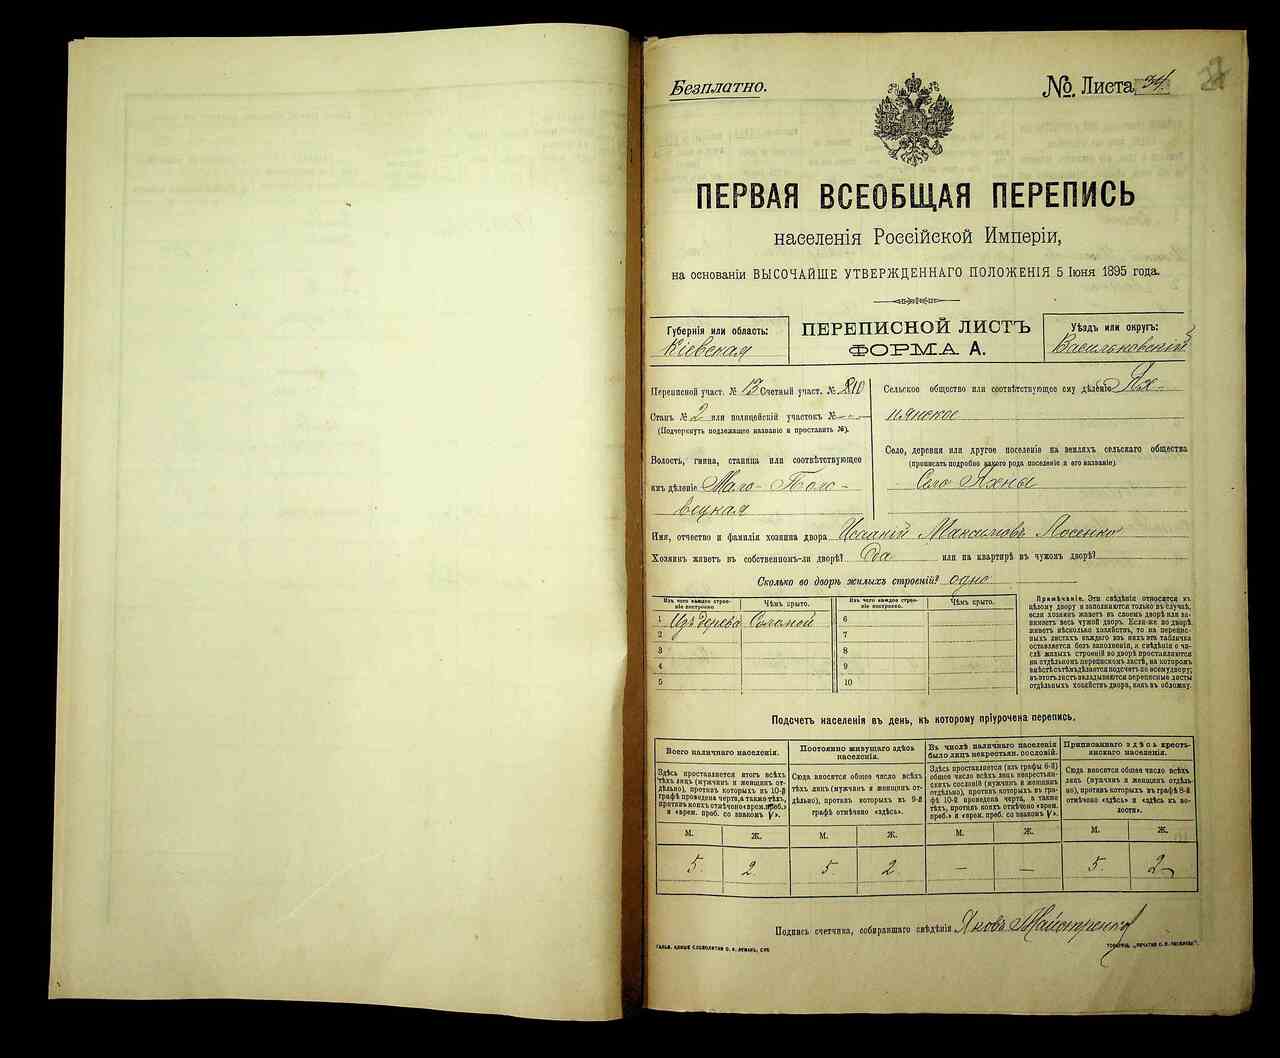 Безплатно.
№. Листа 34.
ПЕРВАЯ ВСЕОБЩАЯ ПЕРЕПИСЬ
населенія Россійской Имперіи,
на основаніи ВЫСОЧАЙШЕ УТВЕРЖДЕННАГО ПОЛОЖЕНІЯ 5 Іюня 1895 года.
Губернія или область:
Кіевская
ПЕРЕПИСНОЙ ЛИСТЪ
ФОРМА А.
Уѣздъ или округъ:
Васильковскій
Переписной участ. № 13 Счетный участ. №
Станъ № 2 или полицейскій участокъ № -
(Подчеркнуть подлежащее названіе и проставить №).
Волость, гмина, станица или соотвѣтствующее
имъ дѣленіе Мало-Поло-
вецкая
Сельское общество или соотвѣтствующее ему дѣленіе Ях-
нянское
Село, деревня или другое поселеніе на земляхъ сельскаго общества
(прописать подробно какого рода поселеніе и его названіе).
Село Яхны
Имя, отчество и фамилія хозяина двора Максимовъ Лосенко
Хозяинъ живетъ въ собственномъ-ли дворѣ? Да или на квартирѣ въ чужомъ дворѣ?
Сколько во дворѣ жилыхъ строеній? одно
Изъ чего каждое строе-
ніе построено.
Чѣмъ крыто.
Изъ чего каждое строе-
ніе построено.
Чѣмъ крыто.
1 Изъ дерева Соломой 6
2 7
3 8
4 9
5 10
Примѣчаніе. Эти свѣдѣнія относятся къ
цѣлому двору и заполняются только въ случаѣ,
если хозяинъ живетъ въ своемъ дворѣ или за-
нимаетъ весь чужой дворъ. Если-же во дворѣ
живетъ нѣсколько хозяйствъ, то на перепис-
ныхъ листахъ каждаго изъ нихъ эта табличка
оставляется безъ заполненія, а свѣдѣнія о чи-
слѣ жилыхъ строеній во дворѣ проставляются
на отдѣльномъ переписномъ листѣ, на которомъ
вмѣстѣ съ тѣмъ дѣлается подсчетъ по всему двору;
въ этотъ листъ вкладываются переписные листы
отдѣльныхъ хозяйствъ двора, какъ въ обложку.
Подсчетъ населенія въ день, къ которому пріурочена перепись.
Всего наличнаго населенія.
Постоянно живущаго здѣсь
населенія.
Въ числѣ наличнаго населенія
было лицъ некрестьян. сословій.
Приписаннаго здѣсь кресть-
янскаго населенія.
Здѣсь проставляется итогъ всѣхъ
тѣхъ лицъ (мужчинъ и женщинъ от-
дѣльно), противъ которыхъ въ 10-й
графѣ проведена черта, а также тѣхъ,
противъ коихъ отмѣчено «врем. преб.»
и «врем. преб. со знакомъ V».
Сюда вносится общее число всѣхъ
тѣхъ лицъ (мужчинъ и женщинъ от-
дѣльно), противъ которыхъ въ 9-й
графѣ отмѣчено «здѣсь».
Здѣсь проставляется (изъ графы 6-й)
общее число всѣхъ лицъ некрестьян-
скихъ сословій (мужчинъ и женщинъ
отдѣльно), противъ которыхъ въ гра-
фѣ 10-й проведена черта, а также
тѣхъ, противъ коихъ отмѣчено «врем.
преб.» и «врем. преб. со знакомъ V».
Сюда вносится общее число всѣхъ
тѣхъ лицъ (мужчинъ и женщинъ отдѣль-
но), противъ которыхъ въ графѣ 8-й
отмѣчено «здѣсь» и «здѣсь къ во-
лости».
М. Ж. М. Ж. М. Ж. М. Ж.
5. 2. 5. 2 — — 5. 2
Подпись счетчика, собиравшаго свѣдѣнія Яковъ Майстренко